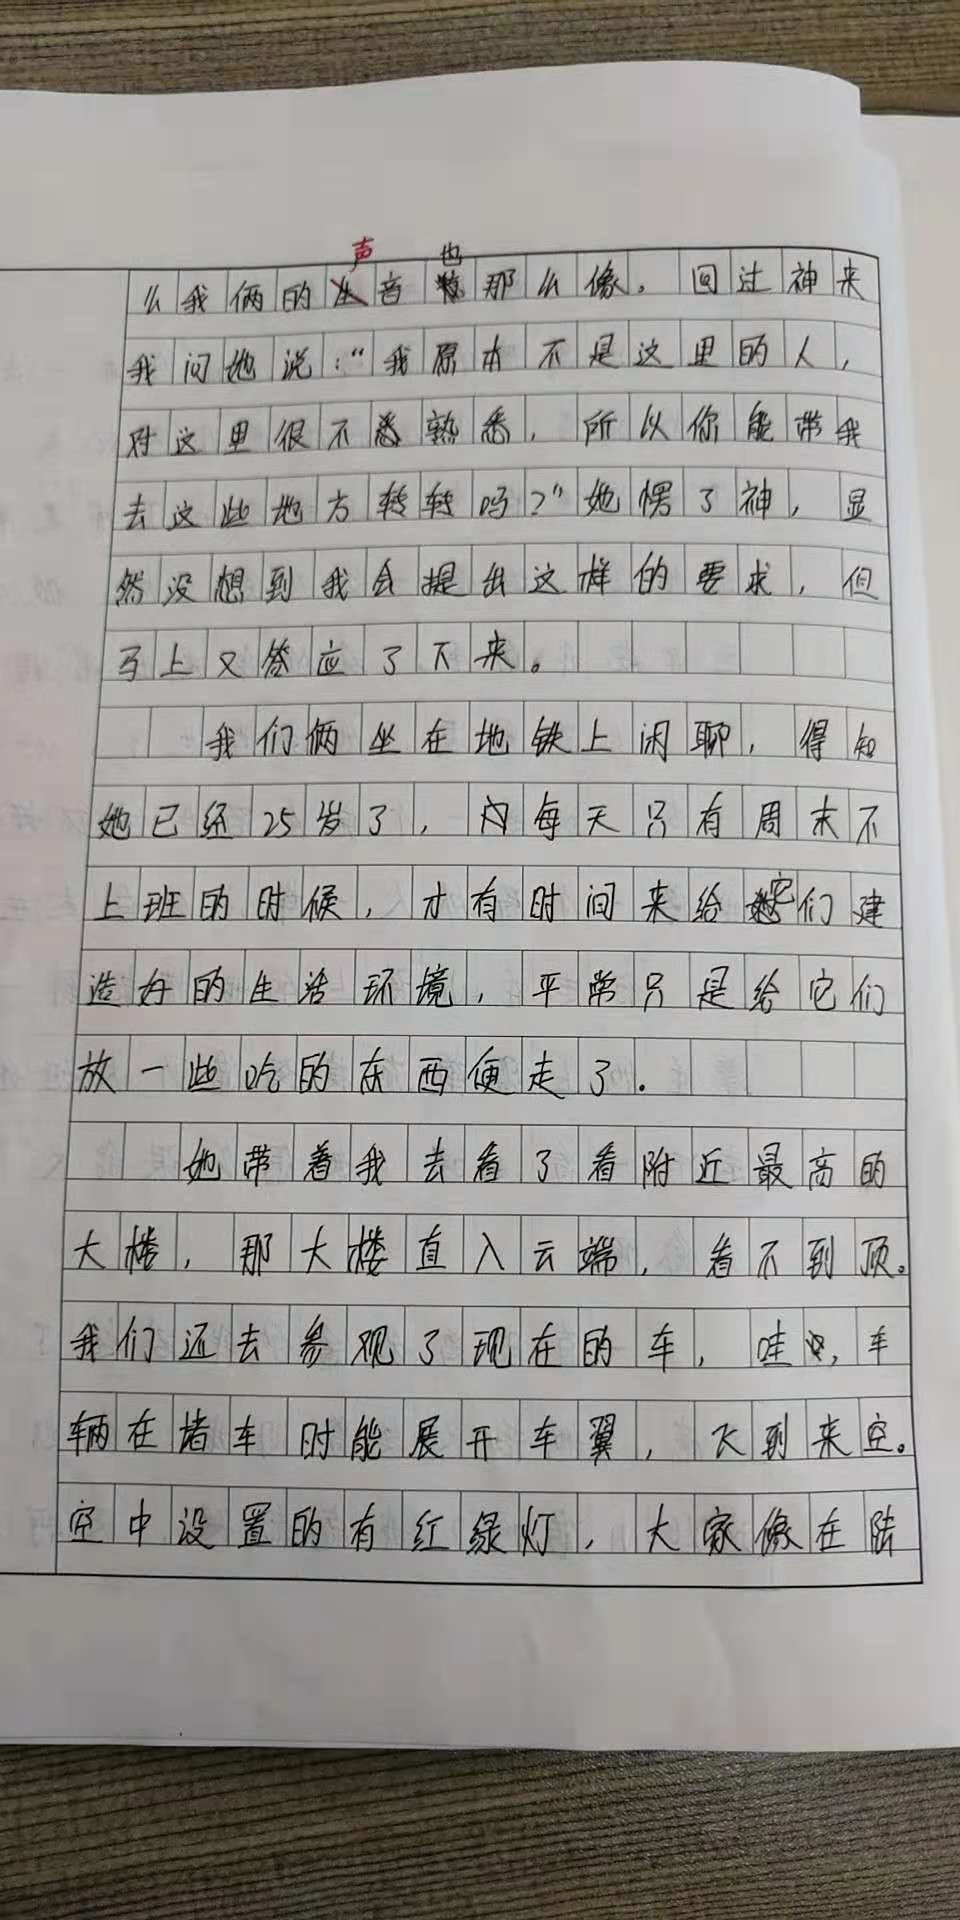 声 也
么我俩的音那么像。回过神来
我问她说:“我原本不是这里的人,
对这里很不熟悉,所以你能带我
去这些地方转转吗?”她愣了神,显
然没想到我会提出这样的要求,但
马上又答应了下来。
我们俩坐在地铁上闲聊,得知
她已经25岁了,每天只有周末不
上班的时候,才有时间来给它们建
造好的生活环境,平常只是给它们
放一些吃的东西便走了.
她带着我去看了看附近最高的
大楼,那大楼直入云端,看不到顶。
我们还去参观了现在的车,哇,车
辆在堵车时能展开车翼,飞到来空。
空中设置的有红绿灯,大家像在陆